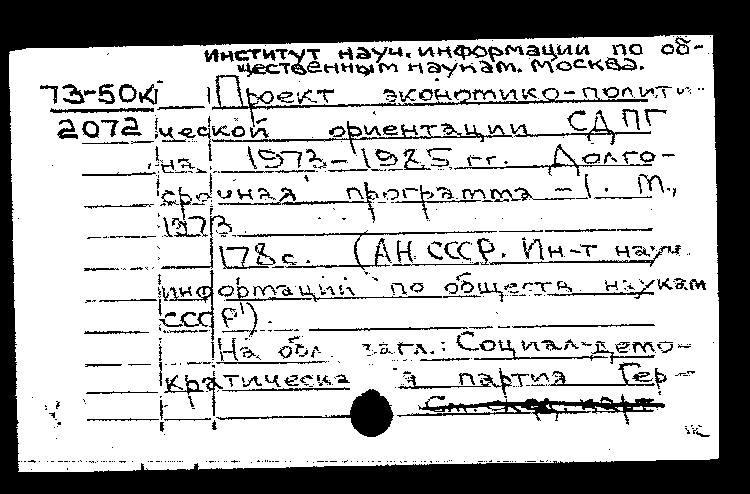 институт науч. информации по об-
щественным наукам. Москва.
73-50К Проект экономико-полити-
2072 ческой ориентации СДПГ
на 1973-1985 гг. Долго-
срочная программа - 1. М.,
1973
178 с. (АН СССР. Ин-т науч.
информации по обществ. наукам
СССР).
На обл. загл.: Социал-демо-
кратическа я партия Гер-
См. след. карт